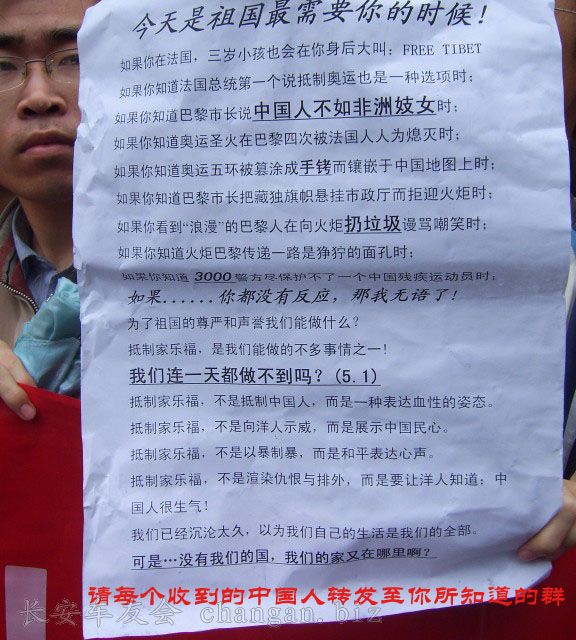 今天是祖国最需要你的时候!
如果你在法国，三岁小孩也会在你身后大叫：FREE TIBET
如果你知道法国总统第一个说抵制奥运也是一种选项时；
如果你知道巴黎市长说中国人不如非洲妓女时；
如果你知道奥运圣火在巴黎四次被法国人人为熄灭时；
如果你知道奥运五环被篡涂成手铐而镶嵌于中国地图上时；
如果你知道巴黎市长把藏独旗帜悬挂市政厅而拒迎火炬时；
如果你看到“浪漫”的巴黎人在向火炬扔垃圾谩骂嘲笑时；
如果你知道火炬巴黎传递一路是狰狞的面孔时；
如果你知道 3000警方尽保护不了一个中国残疾运动员时；
如果......你都没有反应，那我无语了!
为了祖国的尊严和声誉我们能做什么？
抵制家乐福，是我们能做的不多事情之一！
我们连一天都做不到吗？(5.1)
抵制家乐福，不是抵制中国人，而是一种表达血性的姿态。
抵制家乐福，不是向洋人示威，而是展示中国民心。
抵制家乐福，不是以暴制暴，而是和平表达心声。
抵制家乐福，不是渲染仇恨与排外，而是要让洋人知道：中
国人很生气！
我们已经沉沦太久，以为我们自己的生活是我们的全部。
可是…没有我们的国，我们的家又在哪里啊？
请每个收到的中国人转发至你所知道的群
长安车友会 changan.biz